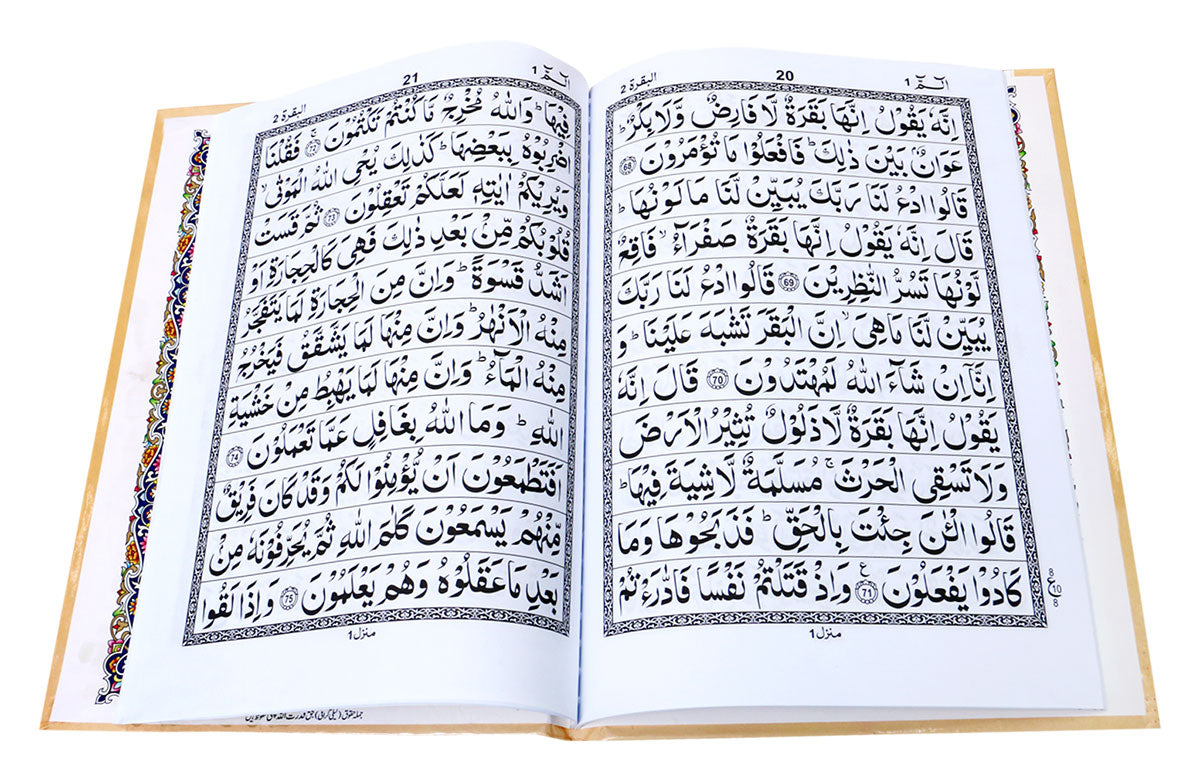 الٓمّٓ 1
20
البقرة 2
اِنَّهٗ يَقُوْلُ اِنَّهَا بَقَرَةٌ لَّا فَارِضٌ وَّلَا بِكْرٌ ؕ
عَوَانٌۢ بَيْنَ ذٰلِكَ ؕ فَافْعَلُوْا مَا تُؤْمَرُوْنَ ۝68
قَالُوا ادْعُ لَنَا رَبَّكَ يُبَيِّنْ لَّنَا مَا لَوْنُهَا ؕ
قَالَ اِنَّهٗ يَقُوْلُ اِنَّهَا بَقَرَةٌ صَفْرَآءُ ۙ فَاقِعٌ
لَّوْنُهَا تَسُرُّ النّٰظِرِيْنَ ۝69 قَالُوا ادْعُ لَنَا رَبَّكَ
يُبَيِّنْ لَّنَا مَا هِىَ ۙ اِنَّ الْبَقَرَ تَشٰبَهَ عَلَيْنَا ؕ وَ
اِنَّاۤ اِنْ شَآءَ اللّٰهُ لَمُهْتَدُوْنَ ۝70 قَالَ اِنَّهٗ
يَقُوْلُ اِنَّهَا بَقَرَةٌ لَّا ذَلُوْلٌ تُثِيْرُ الْاَرْضَ
وَلَا تَسْقِى الْحَرْثَ ۚ مُسَلَّمَةٌ لَّا شِيَةَ فِيْهَا ؕ
قَالُوا الْـٰٔنَ جِئْتَ بِالْحَقِّ ؕ فَذَبَحُوْهَا وَمَا
كَادُوْا يَفْعَلُوْنَ ۝71 ع وَاِذْ قَتَلْتُمْ نَفْسًا فَادّٰرَءْتُمْ
8
ع
10
8
منزل 1
الٓمّٓ 1
21
البقرة 2
فِيْهَا ؕ وَاللّٰهُ مُخْرِجٌ مَّا كُنْتُمْ تَكْتُمُوْنَ ۚ ۝72 فَقُلْنَا
اضْرِبُوْهُ بِبَعْضِهَا ؕ كَذٰلِكَ يُحْىِ اللّٰهُ الْمَوْتٰى ۙ
وَيُرِيْكُمْ اٰيٰتِهٖ لَعَلَّكُمْ تَعْقِلُوْنَ ۝73 ثُمَّ قَسَتْ
قُلُوْبُكُمْ مِّنْۢ بَعْدِ ذٰلِكَ فَهِىَ كَالْحِجَارَةِ اَوْ
اَشَدُّ قَسْوَةً ؕ وَاِنَّ مِنَ الْحِجَارَةِ لَمَا يَتَفَجَّرُ
مِنْهُ الْاَنْهٰرُ ؕ وَاِنَّ مِنْهَا لَمَا يَشَّقَّقُ فَيَخْرُجُ
مِنْهُ الْمَآءُ ؕ وَاِنَّ مِنْهَا لَمَا يَهْبِطُ مِنْ خَشْيَةِ
اللّٰهِ ؕ وَمَا اللّٰهُ بِغَافِلٍ عَمَّا تَعْمَلُوْنَ ۝74
اَفَتَطْمَعُوْنَ اَنْ يُّؤْمِنُوْا لَكُمْ وَقَدْ كَانَ فَرِيْقٌ
مِّنْهُمْ يَسْمَعُوْنَ كَلٰمَ اللّٰهِ ثُمَّ يُحَرِّفُوْنَهٗ مِنْۢ
بَعْدِ مَا عَقَلُوْهُ وَهُمْ يَعْلَمُوْنَ ۝75 وَاِذَا لَقُوا
منزل 1
جملہ حقوق